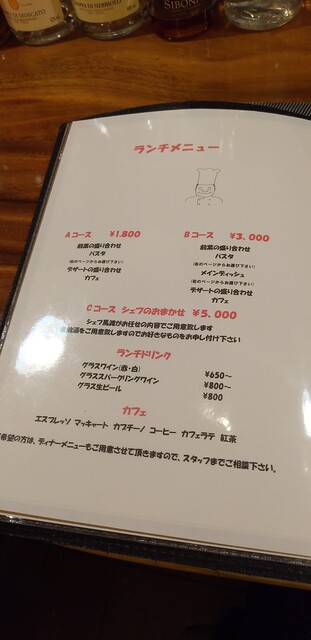 DI MOSCATO
DI NEBBIOLO
SIBONI
ランチメニュー
Aコース ¥1.800
前菜の盛り合わせ
パスタ
(右のページからお選び下さい)
デザートの盛り合わせ
カフェ
Bコース ¥3,000
前菜の盛り合わせ
パスタ
(右のページからお選び下さい)
メインディッシュ
(右のページからお選び下さい)
デザートの盛り合わせ
カフェ
Cコース シェフのおまかせ ¥5,000
シェフ馬渡がお任せの内容でご用意致します
をご用意致しますのでお好きなものをお申し付け下さい
ランチドリンク
グラスワイン(赤・白) ¥650～
グラススパークリングワイン ¥800～
グラス生ビール ¥800
カフェ
エスプレッソ マッキャート カプチーノ コーヒー カフェラテ 紅茶
希望の方は、ディナーメニューもご用意させて頂きますので、スタッフまでご相談下さい。